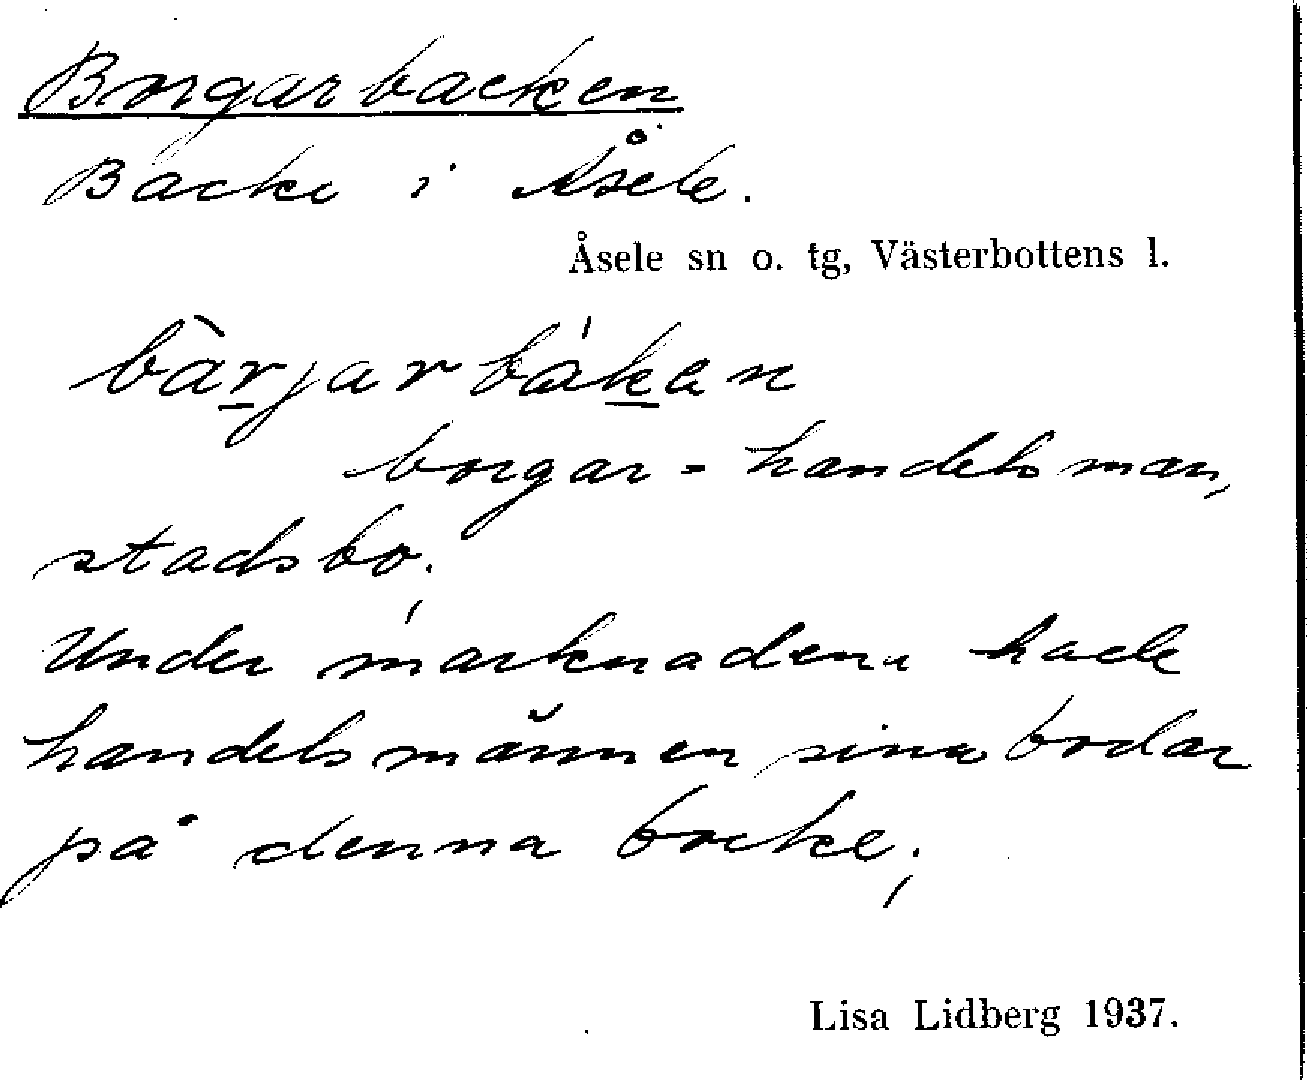 Borgarbacken
Backe i Åsele.
Åsele sn o. tg, Västerbottens l.
bàrjarbákan
borgar = handelsman,
stadsbo.
Under marknaden hade
handelsmännen sina bodar
på denna backe;
Lisa Lidberg 1937.